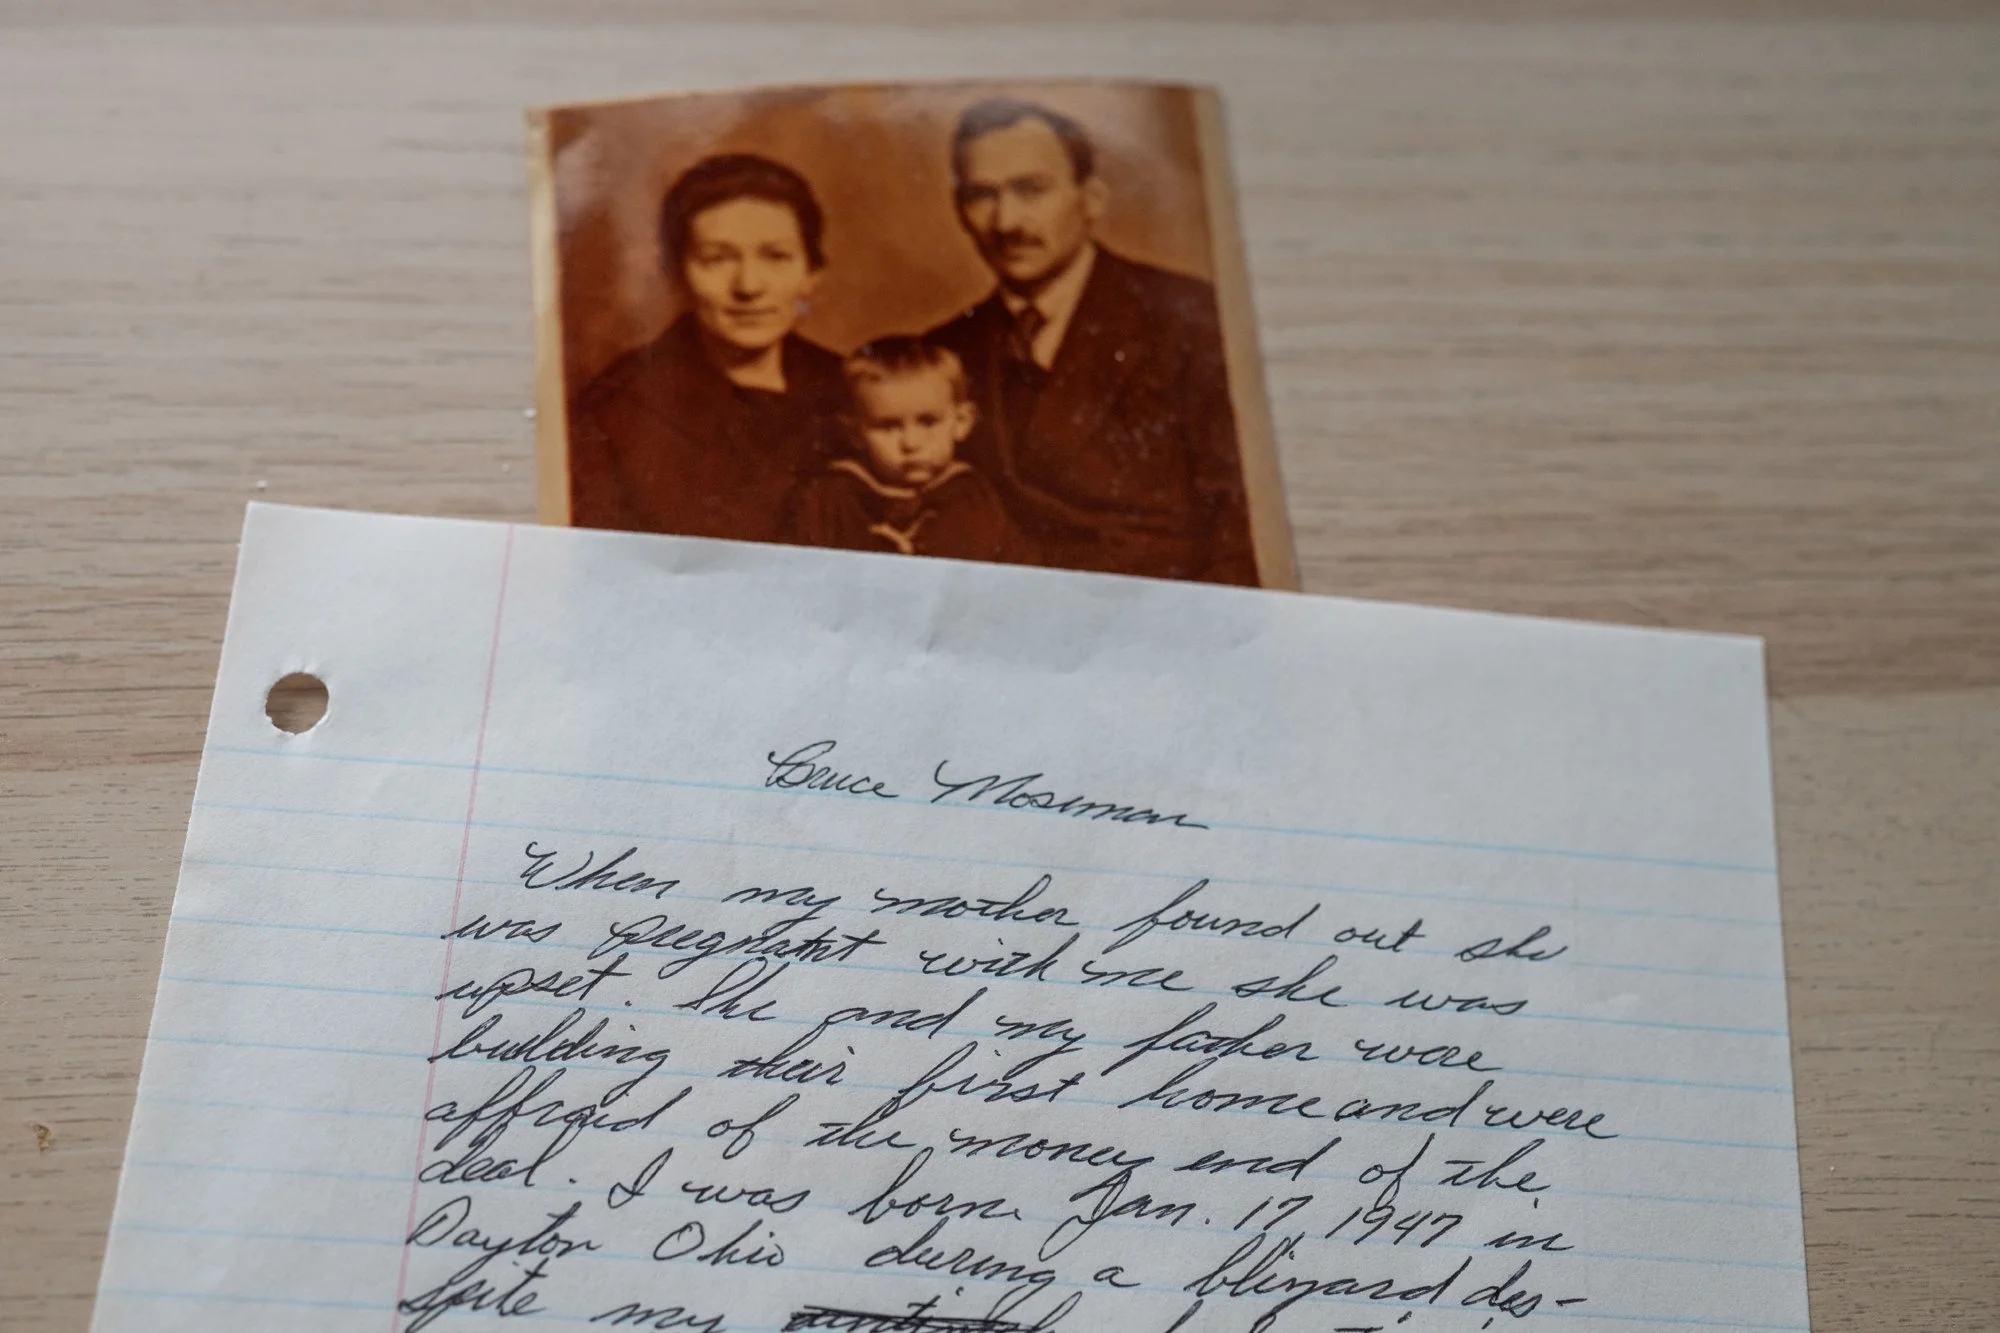 Bruce Moseman
When my mother found out she
was pregnant with me she was
upset. She and my father were
building their first home and were
affraid of the money end of the
deal. I was born Jan. 17, 1947 in
Dayton Ohio during a blizzard des-
spite my